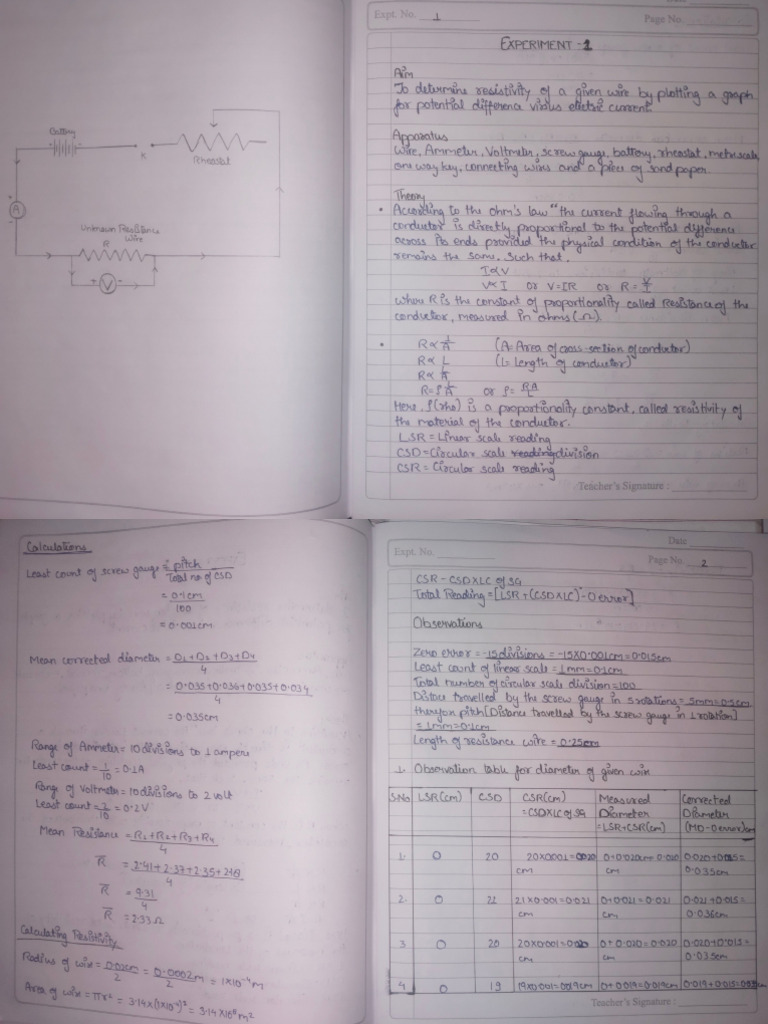 Battery
K
Rheostat
A
Unknown Resistance
wire
R
V
Expt. No. 1
Page No.
EXPERIMENT - 1
Aim
To determine resistivity of a given wire by plotting a graph
for potential difference versus electric current.
Apparatus
Wire, Ammeter, Voltmeter, screw gauge, battery, rheostat, metre scale,
one way key, connecting wires and a piece of sand paper.
Theory
• According to the ohm's law "the current flowing through a
conductor is directly proportional to the potential difference
across its ends provided the physical condition of the conductor
remains the same. Such that.
I∝V
V∝I or V=IR or R=V/I
where R is the constant of proportionality called Resistance of the
conductor, measured in ohms (Ω).
• R∝1/A (A=Area of cross-section of conductor)
R∝L (L=Length of conductor)
R∝
R=ρ or ρ=RA/L
Here, ρ(rho) is a proportionality constant, called resistivity of
the material of the conductor.
LSR=Linear scale reading
CSD=Circular scale division
CSR=Circular scale reading
Teacher's Signature :
Calculations
Least count of screw gauge = pitch
Total no of CSD
= 0.1cm
100
= 0.001cm
Mean corrected diameter = D1+D2+D3+D4
4
= 0.035+0.036+0.035+0.034
4
= 0.035cm
Range of Ammeter=10 divisions to 1 ampere
Least count=1/10=0.1A
Range of Voltmeter=10 divisions to 2 volt
Least count=2/10=0.2V
Mean Resistance=R1+R2+R3+R4
4
R = 2.41+2.37+2.35+
4
R = 9.31
4
R = 2.33Ω
Calculating Resistivity
Radius of wire= /2 = 0.0002m/2 = 1×10⁻⁴m
Area of wire=πr²=3.14×(1×10⁻⁴)²=3.14×10⁻⁸m²
Date
Expt. No.
Page No. 2
CSR-CSD×LC of SG
Total Reading=[LSR+(CSD×LC)-0 error]
Observations
Zero error=-15 divisions=-15×0.001cm=0.015cm
Least count of linear scale=1mm=0.1cm
Total number of circular scale division=100
Distace travelled by the screw gauge in 5 rotations=5mm=0.5cm
pitch[Distance travelled by the screw gauge in 1 rotation]
=1mm=0.1cm
Length of resistance wire=0.25cm
1. Observation table for diameter of given wire
S.No LSR(cm) CSD CSR(cm) =CSD×LC of SG Measured Diameter =LSR+CSR(cm) Corrected Diameter (MD-0 error)cm
1. 0 20 20×0.001=0.020 cm 0+0.020cm=0.020 cm 0.020+0.015= 0.035cm
2. 0 21 21×0.001=0.021 cm 0+0.021=0.021 cm 0.021+0.015= 0.036cm
3 0 20 20×0.001=0.020 cm 0+0.020=0.020 cm 0.020+0.015= 0.035cm
4 0 19 19×0.001=0.019cm 0+0.019=0.019cm 0.019+0.015=
Teacher's Signature :